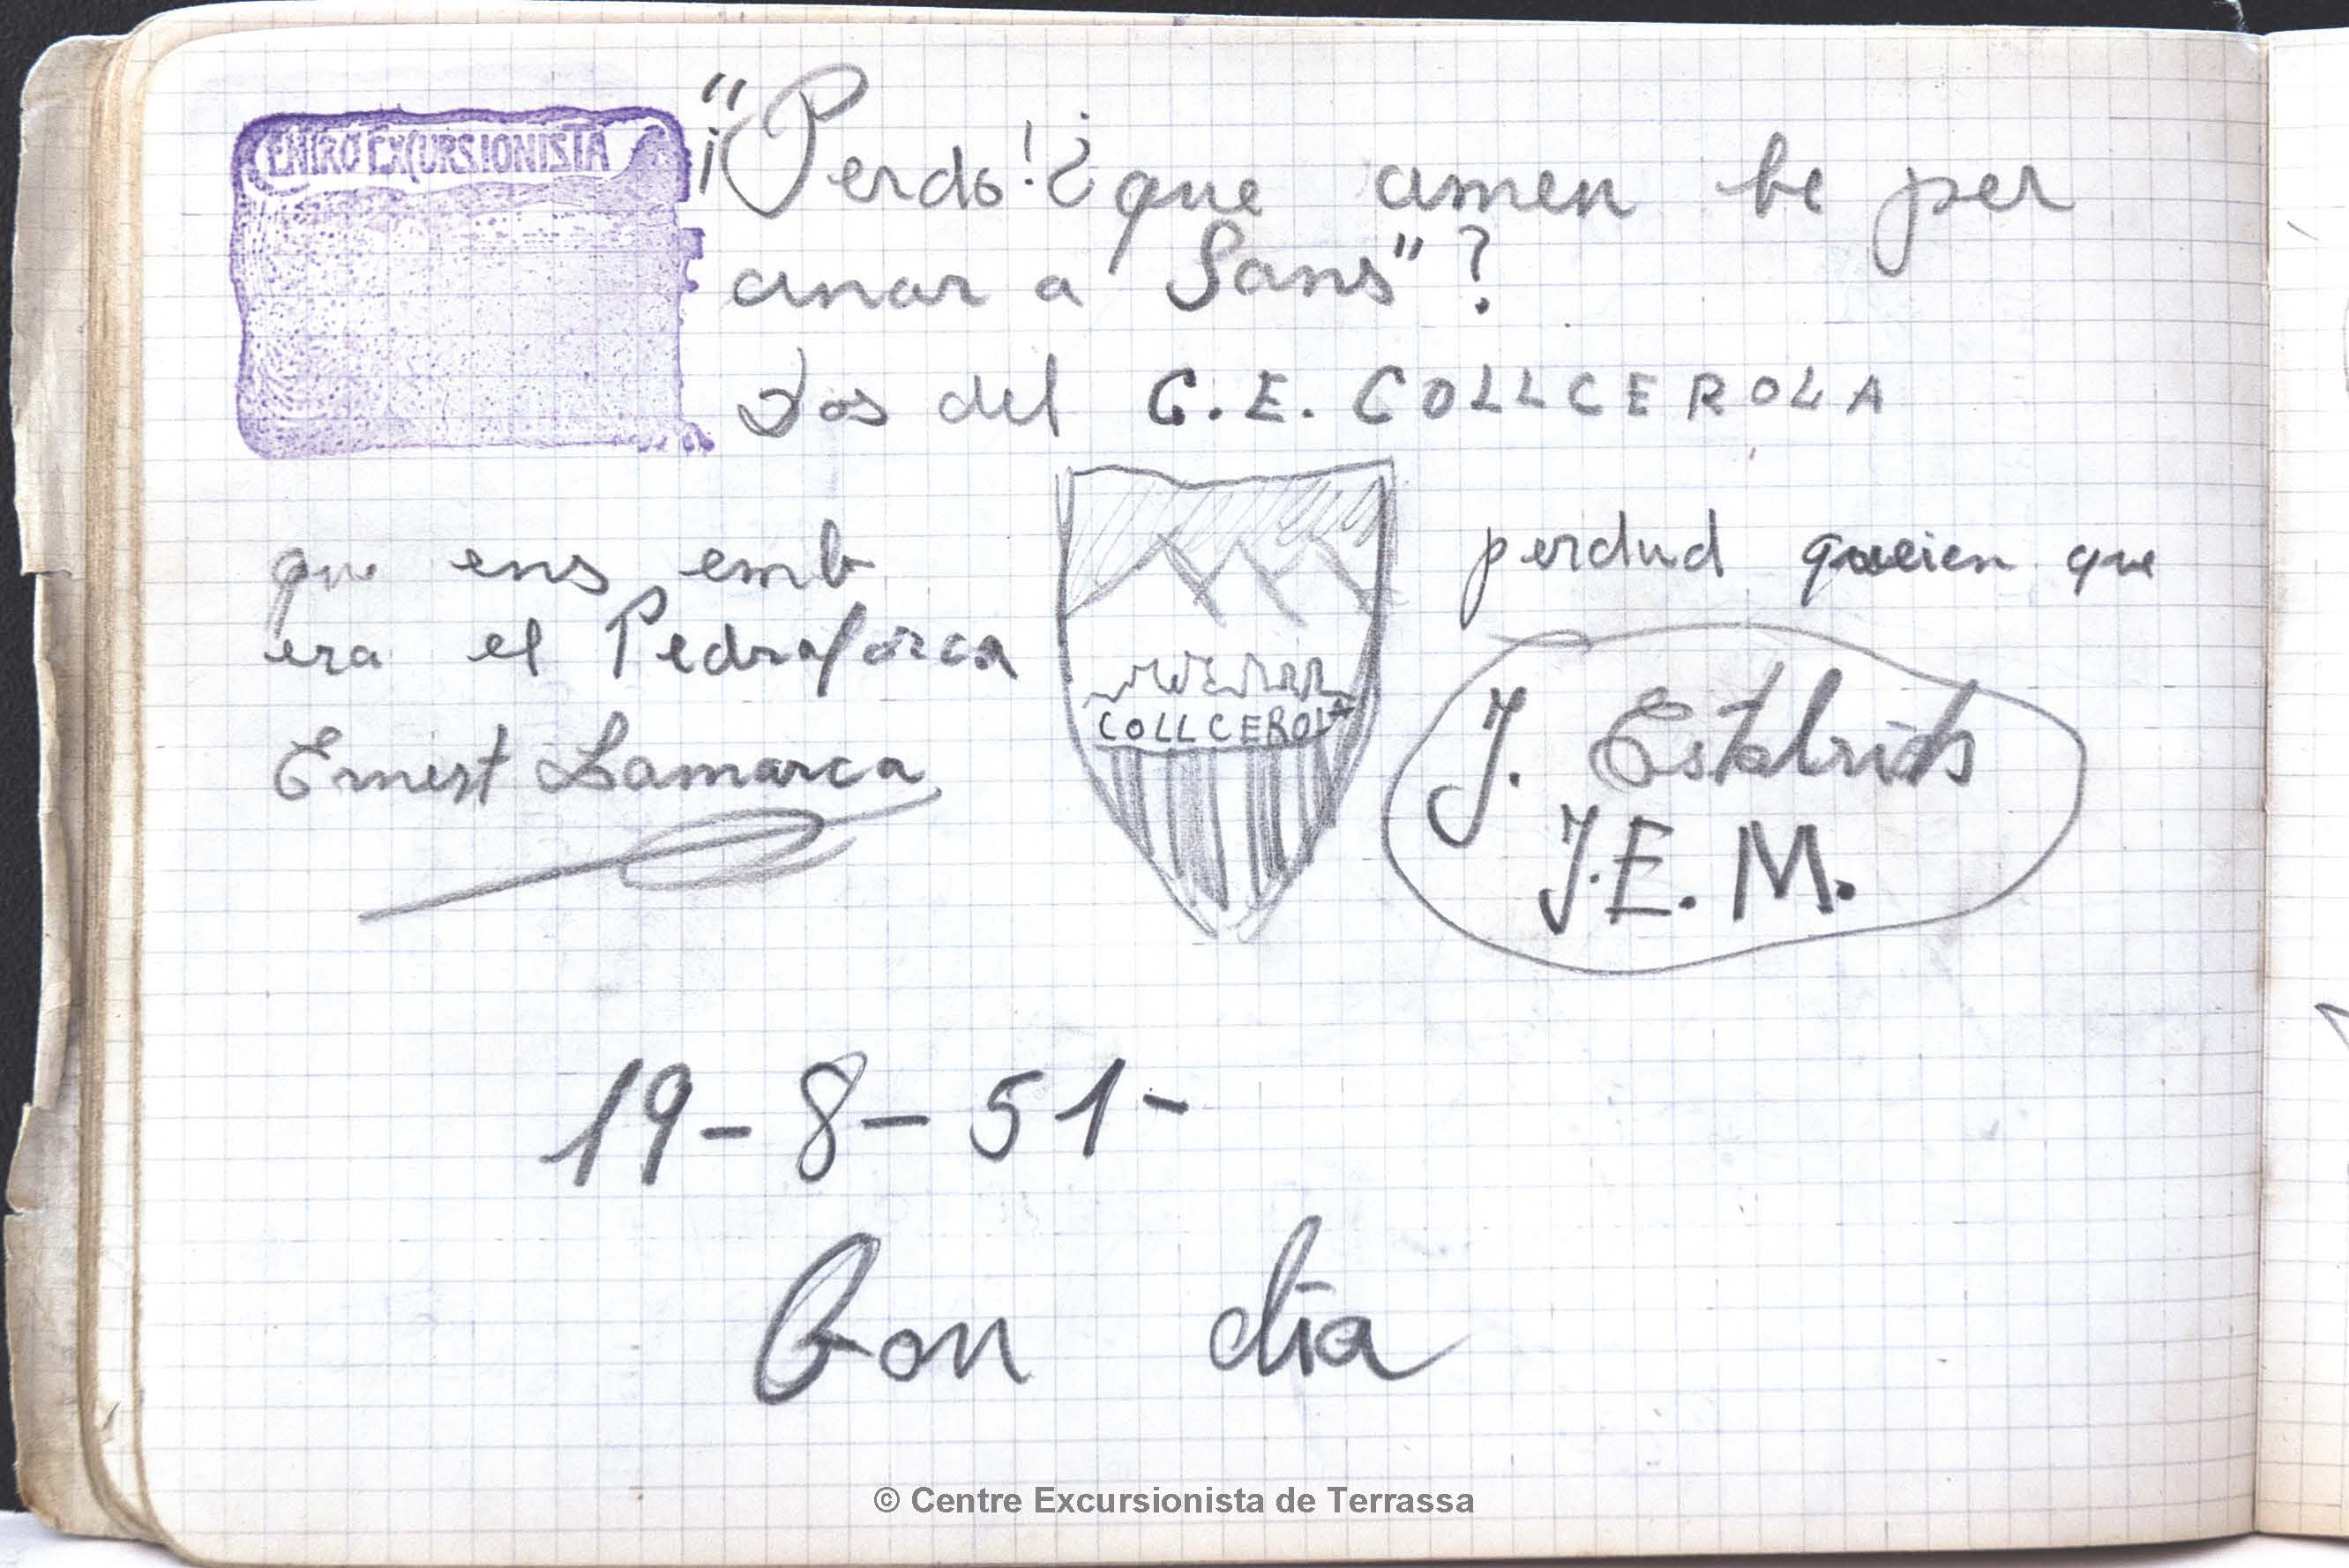 CENTRO EXCURSIONISTA
"¡Perdo! ¿que amen be per
anar a Sans"?
Dos del C.E. COLLCEROLA
que ens emb perdud que
era el Pedraforca
COLLCEROLA
Ernest Lamarca
J. Estalrich
J.E.M.
19-8-51-
Bon dia
© Centre Excursionista de Terrassa